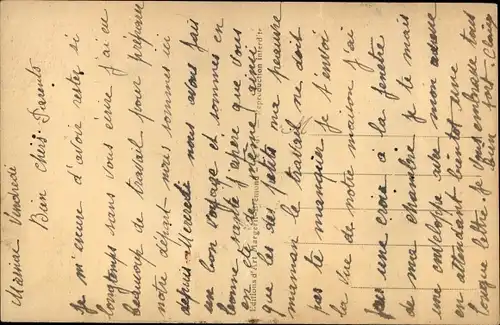 Vendredi
Bien chers Parents
Je m'excuse d'avoir resté si
longtemps sans vous écrire j'ai eu
beaucoup de travail pour préparer
notre départ nous sommes ici
depuis Mercredi nous avons fait
un bon voyage et sommes en
bonne santé j'espère que vous
en de même ainsi
que les petits ma pauvre
maman le travail ne doit
pas te manquer je t'envoi
la vue de notre maison j'ai
fait une croix à la fenêtre
de ma chambre je te mais
une enveloppe avec mon adresse
en attendant bientôt une
longue lettre. Je vous embrasse tous
bien fort.
Editions d'Art
Reproduction Interdite